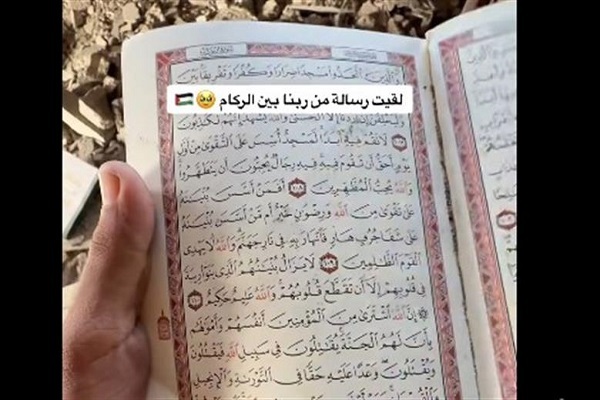 وَالَّذِينَ اتَّخَذُوا مَسْجِدًا ضِرَارًا وَكُفْرًا وَتَفْرِيقًا بَيْنَ
لقيت رسالة من ربنا بين الركام 🥹 🇵🇸
وَلَيَحْلِفُنَّ إِنْ أَرَدْنَا إِلَّا الْحُسْنَىٰ وَاللَّهُ يَشْهَدُ إِنَّهُمْ لَكَاذِبُونَ
١٠٧ لَا تَقُمْ فِيهِ أَبَدًا لَمَسْجِدٌ أُسِّسَ عَلَى التَّقْوَىٰ مِنْ أَوَّلِ
يَوْمٍ أَحَقُّ أَنْ تَقُومَ فِيهِ فِيهِ رِجَالٌ يُحِبُّونَ أَنْ يَتَطَهَّرُوا
وَاللَّهُ يُحِبُّ الْمُطَّهِّرِينَ ١٠٨ أَفَمَنْ أَسَّسَ بُنْيَانَهُ
عَلَىٰ تَقْوَىٰ مِنَ اللَّهِ وَرِضْوَانٍ خَيْرٌ أَمْ مَنْ أَسَّسَ بُنْيَانَهُ
عَلَىٰ شَفَا جُرُفٍ هَارٍ فَانْهَارَ بِهِ فِي نَارِ جَهَنَّمَ وَاللَّهُ لَا يَهْدِي
الْقَوْمَ الظَّالِمِينَ ١٠٩ لَا يَزَالُ بُنْيَانُهُمُ الَّذِي بَنَوْا رِيبَةً
فِي قُلُوبِهِمْ إِلَّا أَنْ تَقَطَّعَ قُلُوبُهُمْ وَاللَّهُ عَلِيمٌ حَكِيمٌ ١١٠
إِنَّ اللَّهَ اشْتَرَىٰ مِنَ الْمُؤْمِنِينَ أَنْفُسَهُمْ وَأَمْوَالَهُمْ
بِأَنَّ لَهُمُ الْجَنَّةَ يُقَاتِلُونَ فِي سَبِيلِ اللَّهِ فَيَقْتُلُونَ
وَيُقْتَلُونَ وَعْدًا عَلَيْهِ حَقًّا فِي التَّوْرَاةِ وَالْإِنْجِيلِ